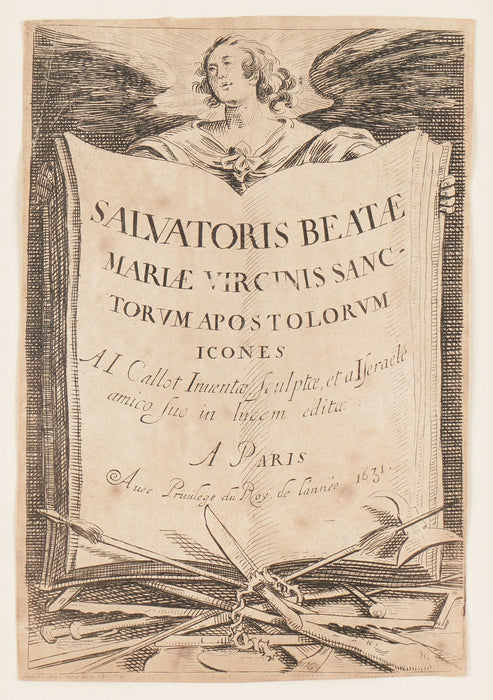 SALVATORIS BEATÆ
MARIÆ VIRGINIS SANC-
TORVM APOSTOLORVM
ICONES
A I Callot Inuentæ sculptæ, et a Israele
amico suo in lucem editæ.
A PARIS
Auec Priuilege du Roy. de l'année 1631.